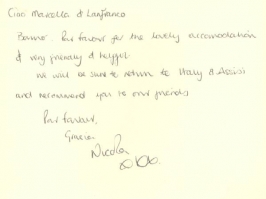 Ciao Marcella & Lanfranco
Por favour for the lovely accomodation
& very friendly & helpful
we will be sure to return to Italy & Assisi
and recommend you to our friends
Por favour,
Grazie
Nicola